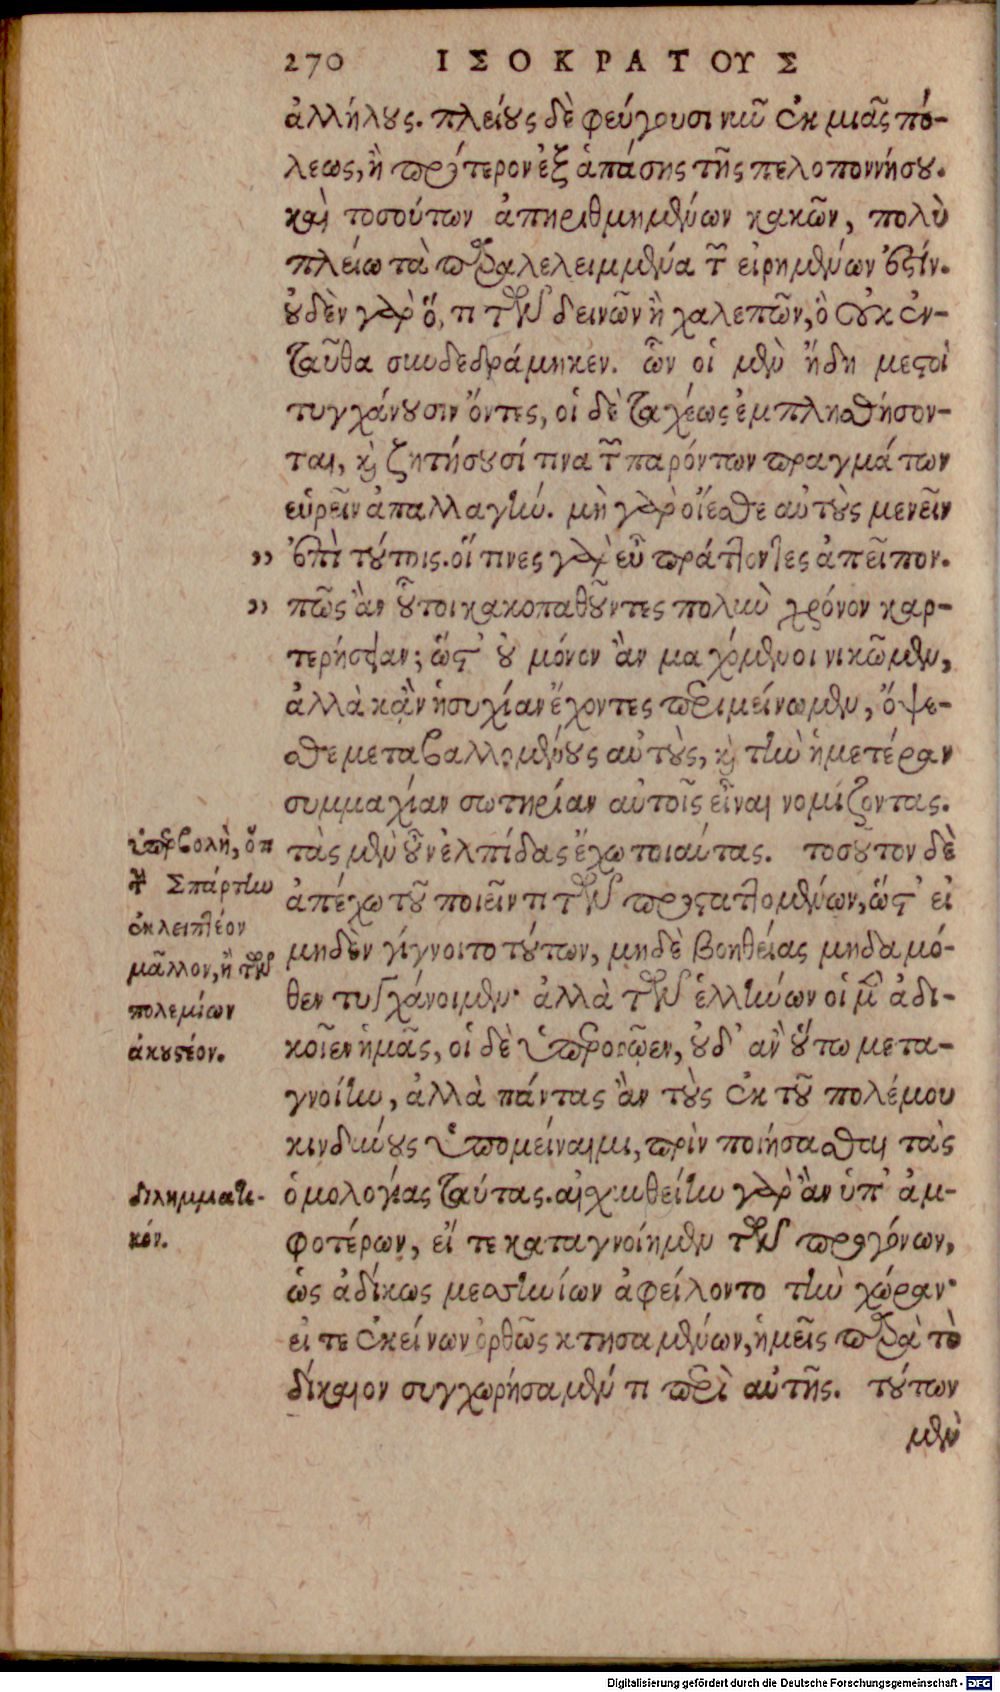 270 ΙΣΟΚΡΑΤΟΥΣ
ἀλλήλους. πλείους δὲ φεύγουσι νῦν ἐκ μιᾶς πό-
λεως, ἢ πρότερον ἐξ ἁπάσης τῆς πελοποννήσου.
καὶ τοσούτων ἀπηριθμημένων κακῶν, πολὺ
πλείω τὰ παραλελειμμένα τῶν εἰρημένων ἐστίν.
οὐδὲν γὰρ ὅ, τι τῶν δεινῶν ἢ χαλεπῶν, ὃ οὐκ ἐν-
ταῦθα συνδεδράμηκεν. ὧν οἱ μὲν ἤδη μεστοὶ
τυγχάνουσιν ὄντες, οἱ δὲ ταχέως ἐμπληθήσον-
ται, καὶ ζητήσουσί τινα τῶν παρόντων πραγμάτων
εὑρεῖν ἀπαλλαγήν. μὴ γὰρ οἴεσθε αὐτοὺς μενεῖν
,, ἐπὶ τούτοις. οἵτινες γὰρ εὖ πράττοντες ἀπεῖπον.
,, πῶς ἂν οὗτοι κακοπαθοῦντες πολὺν χρόνον καρ-
τερήσειαν; ὥστ' οὐ μόνον ἂν μαχόμενοι νικῶμεν,
ἀλλὰ κἂν ἡσυχίαν ἔχοντες περιμείνωμεν, ὄψε-
σθε μεταβαλλομένους αὐτοὺς, καὶ τὴν ἡμετέραν
συμμαχίαν σωτηρίαν αὐτοῖς εἶναι νομίζοντας.
τὰς μὲν οὖν ἐλπίδας ἔχω τοιαύτας. τοσοῦτον δὲ
ἀπέχω τοῦ ποιεῖν τι τῶν προσταττομένων, ὥστ' εἰ
μηδὲν γίγνοιτο τούτων, μηδὲ βοηθείας μηδαμό-
θεν τυγχάνοιμεν· ἀλλὰ τῶν ἑλλήνων οἱ μὲν ἀδι-
κοῖεν ἡμᾶς, οἱ δὲ ὑπερορῷεν, οὐδ' ἂν οὕτω μετα-
γνοίην, ἀλλὰ πάντας ἂν τοὺς ἐκ τοῦ πολέμου
κινδύνους ὑπομείναιμι, πρὶν ποιήσασθαι τὰς
ὁμολογίας ταύτας. αἰσχυνθείην γὰρ ἂν ὑπ' ἀμ-
φοτέρων, εἴτε καταγνοίημεν τῶν προγόνων,
ὡς ἀδίκως μεσσηνίων ἀφείλοντο τὴν χώραν·
εἴτε ἐκείνων ὀρθῶς κτησαμένων, ἡμεῖς παρὰ τὸ
δίκαιον συγχωρήσαμέν τι περὶ αὐτῆς. τούτων
μὲν
ὑπερβολὴ, ὅτι
τὴν Σπάρτην
ἐκλειπτέον
μᾶλλον, ἢ τῶν
πολεμίων
ἀκουστέον.
διλημματι-
κόν.
Digitalisierung gefördert durch die Deutsche Forschungsgemeinschaft - DFG